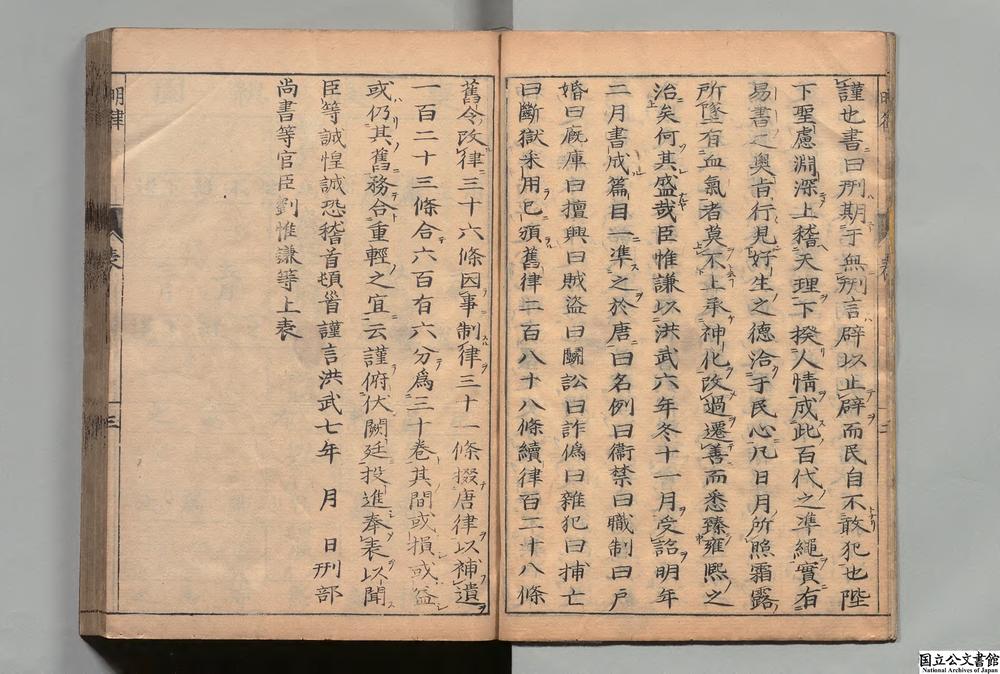 謹也書曰刑期于無刑言辟以止辟而民自不敢犯也陛
下聖慮淵深上稽天理下揆人情成此百代之準繩實有
易書之奥旨行見好生之德洽于民心凡日月所照霜露
所墜有血氣者莫不上承神化改過遷善而悉臻雍熙之
治矣何其盛哉臣惟謙以洪武六年冬十一月受詔明年
二月書成篇目一準之於唐曰名例曰衞禁曰職制曰戶
婚曰厩庫曰擅興曰賊盜曰鬬訟曰詐僞曰雜犯曰捕亡
曰斷獄采用已頒舊律二百八十八條續律百二十八條
舊令改律三十六條因事制律三十一條掇唐律以補遺
一百二十三條合六百有六分爲三十卷其間或損或益
或仍其舊務合重輕之宜云謹俯伏闕廷投進奉表以聞
臣等誠惶誠恐稽首頓首謹言洪武七年 月 日刑部
尚書等官臣劉惟謙等上表
明律
表
三
国立公文書館
National Archives of Japan